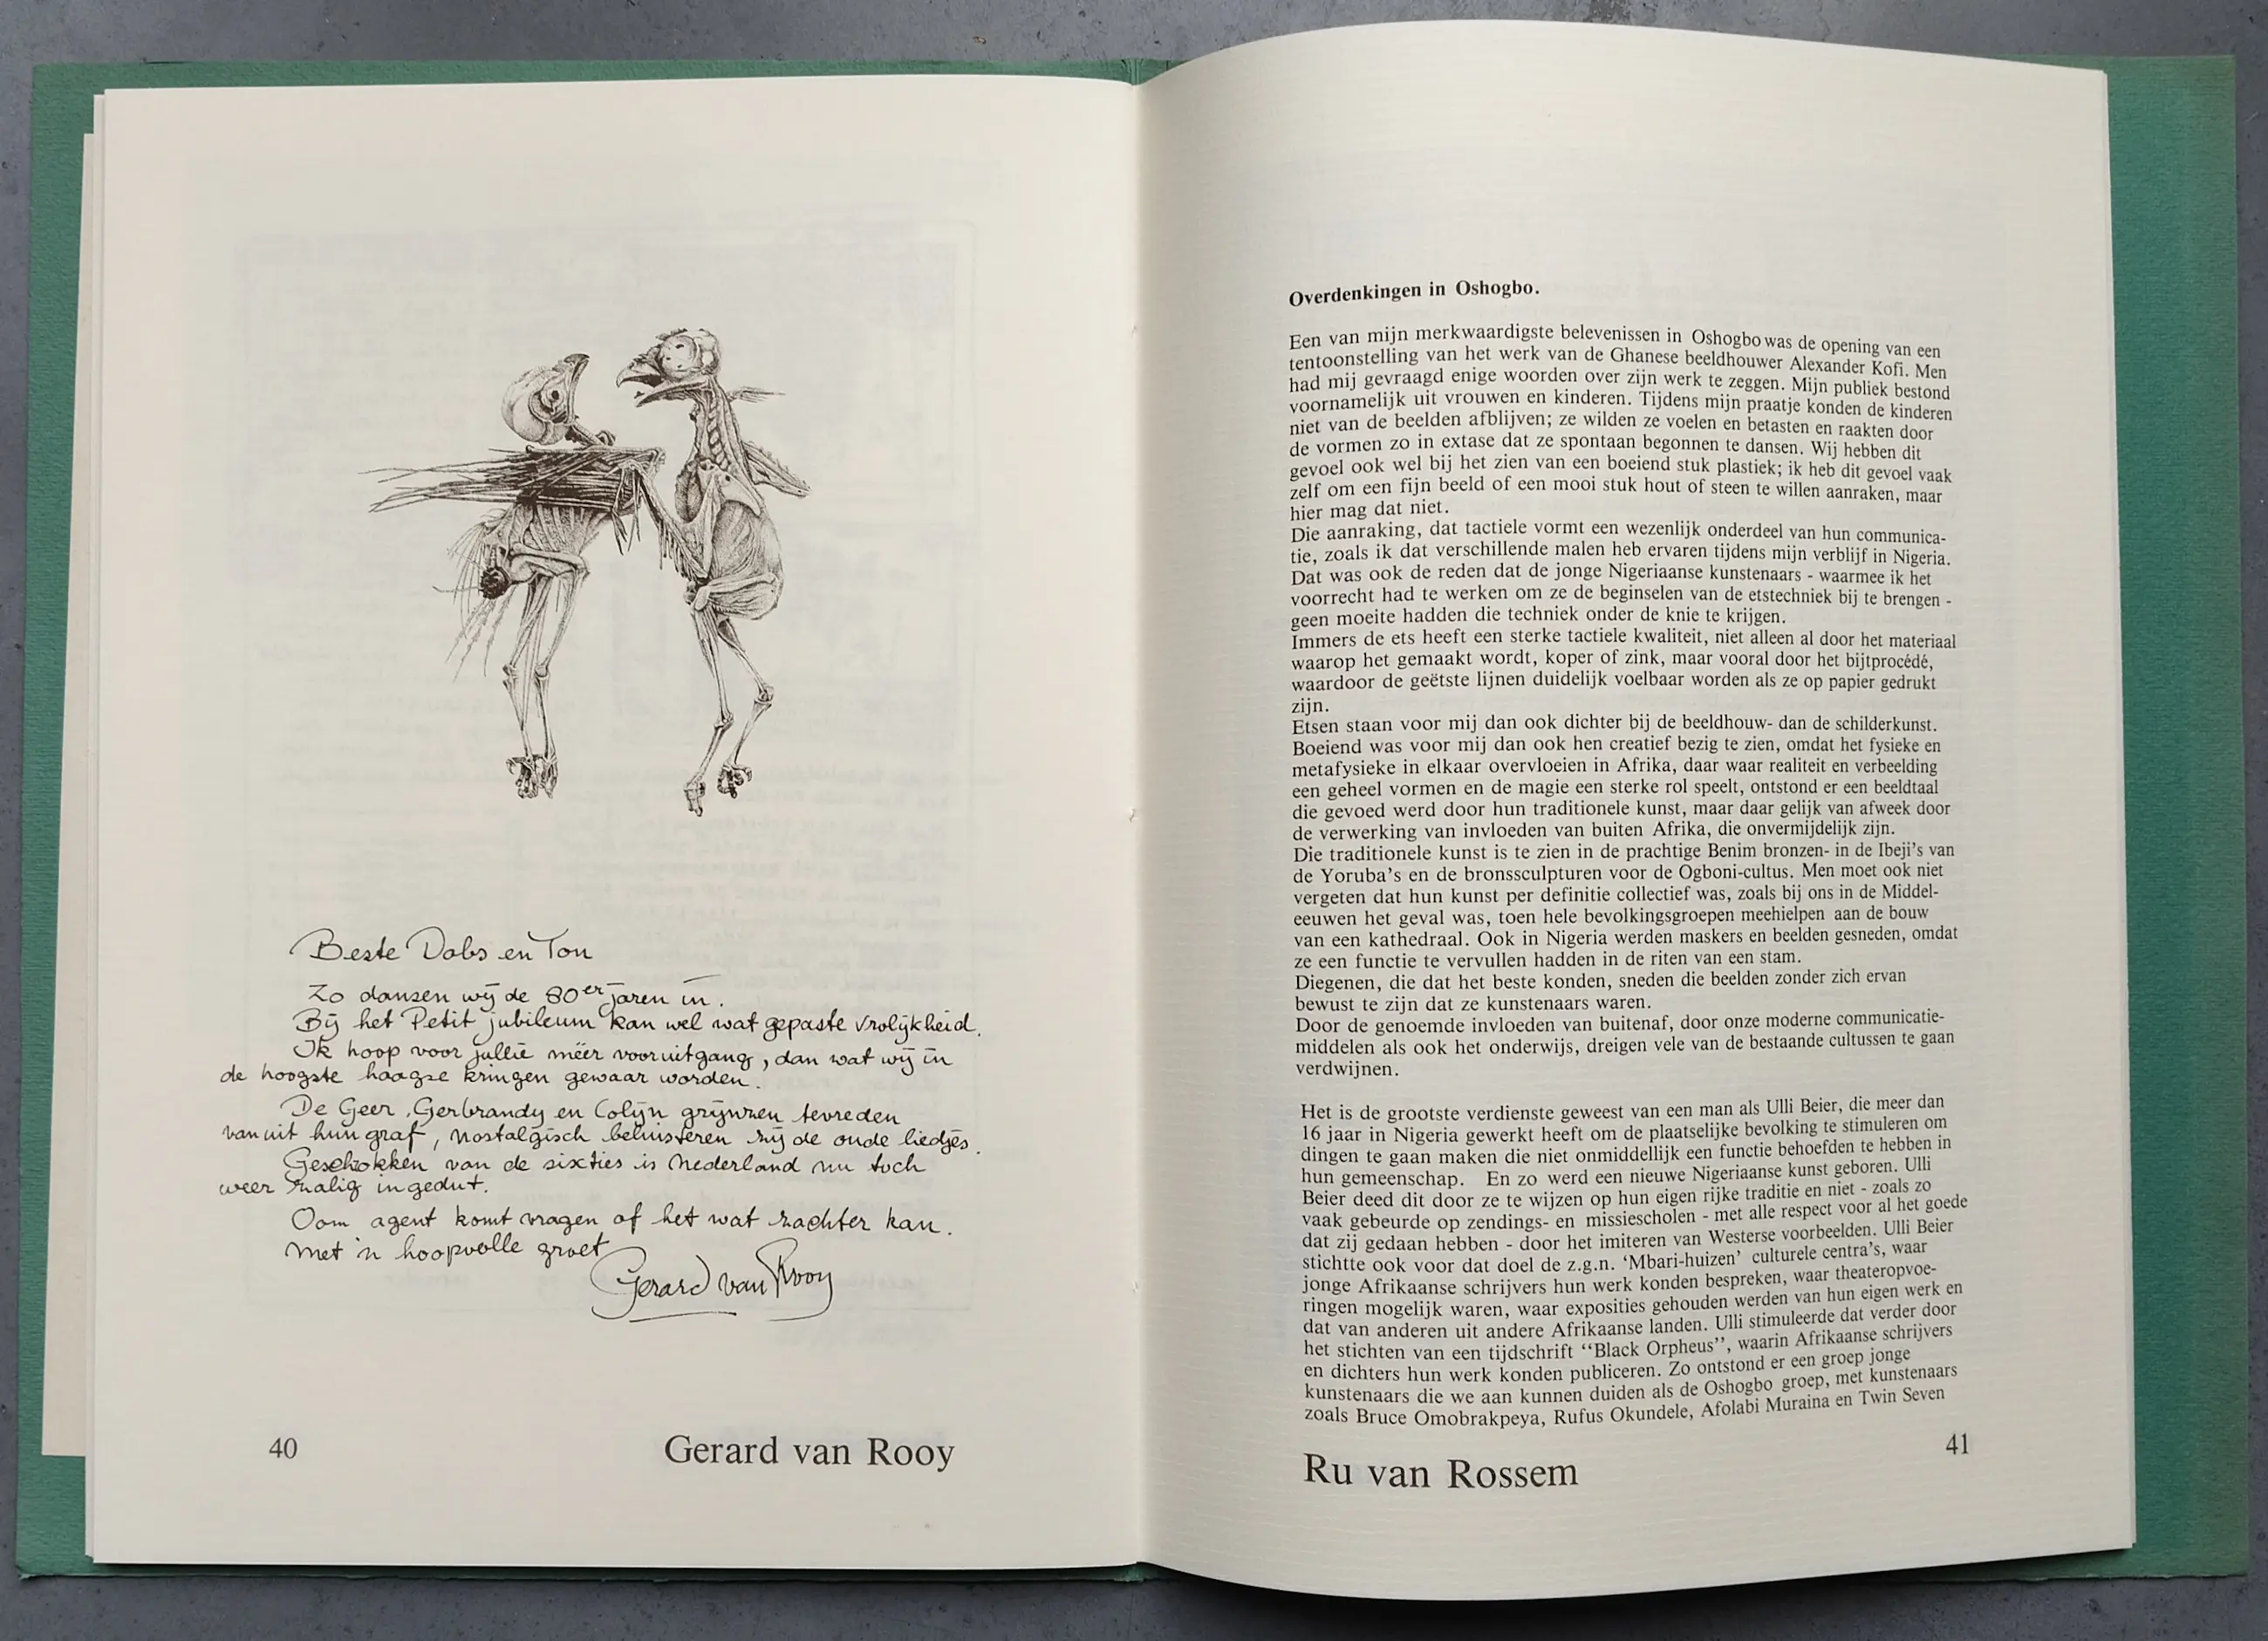 Beste Dobs en Ton
Zo dansen wij de 80er jaren in.
Bij het Petit jubileum kan wel wat gepaste vrolijkheid.
Ik hoop voor jullie méér vooruitgang, dan wat wij in
de hoogste haagse kringen gewaar worden.
De Geer, Gerbrandy en Colijn grijnzen tevreden
vanuit hun graf, nostalgisch beluisteren zij de oude liedjes.
Geschrokken van de sixties is Nederland nu toch
weer zalig ingedut.
Oom agent komt vragen of het wat zachter kan.
Met 'n hoopvolle groet
Gerard van Rooy
40
Gerard van Rooy
Overdenkingen in Oshogbo.
Een van mijn merkwaardigste belevenissen in Oshogbo was de opening van een
tentoonstelling van het werk van de Ghanese beeldhouwer Alexander Kofi. Men
had mij gevraagd enige woorden over zijn werk te zeggen. Mijn publiek bestond
voornamelijk uit vrouwen en kinderen. Tijdens mijn praatje konden de kinderen
niet van de beelden afblijven; ze wilden ze voelen en betasten en raakten door
de vormen zo in extase dat ze spontaan begonnen te dansen. Wij hebben dit
gevoel ook wel bij het zien van een boeiend stuk plastiek; ik heb dit gevoel vaak
zelf om een fijn beeld of een mooi stuk hout of steen te willen aanraken, maar
hier mag dat niet.
Die aanraking, dat tactiele vormt een wezenlijk onderdeel van hun communica-
tie, zoals ik dat verschillende malen heb ervaren tijdens mijn verblijf in Nigeria.
Dat was ook de reden dat de jonge Nigeriaanse kunstenaars - waarmee ik het
voorrecht had te werken om ze de beginselen van de etstechniek bij te brengen -
geen moeite hadden die techniek onder de knie te krijgen.
Immers de ets heeft een sterke tactiele kwaliteit, niet alleen al door het materiaal
waarop het gemaakt wordt, koper of zink, maar vooral door het bijtprocédé,
waardoor de geëtste lijnen duidelijk voelbaar worden als ze op papier gedrukt
zijn.
Etsen staan voor mij dan ook dichter bij de beeldhouw- dan de schilderkunst.
Boeiend was voor mij dan ook hen creatief bezig te zien, omdat het fysieke en
metafysieke in elkaar overvloeien in Afrika, daar waar realiteit en verbeelding
een geheel vormen en de magie een sterke rol speelt, ontstond er een beeldtaal
die gevoed werd door hun traditionele kunst, maar daar gelijk van afweek door
de verwerking van invloeden van buiten Afrika, die onvermijdelijk zijn.
Die traditionele kunst is te zien in de prachtige Benim bronzen- in de Ibeji's van
de Yoruba's en de bronssculpturen voor de Ogboni-cultus. Men moet ook niet
vergeten dat hun kunst per definitie collectief was, zoals bij ons in de Middel-
eeuwen het geval was, toen hele bevolkingsgroepen meehielpen aan de bouw
van een kathedraal. Ook in Nigeria werden maskers en beelden gesneden, omdat
ze een functie te vervullen hadden in de riten van een stam.
Diegenen, die dat het beste konden, sneden die beelden zonder zich ervan
bewust te zijn dat ze kunstenaars waren.
Door de genoemde invloeden van buitenaf, door onze moderne communicatie-
middelen als ook het onderwijs, dreigen vele van de bestaande cultussen te gaan
verdwijnen.
Het is de grootste verdienste geweest van een man als Ulli Beier, die meer dan
16 jaar in Nigeria gewerkt heeft om de plaatselijke bevolking te stimuleren om
dingen te gaan maken die niet onmiddellijk een functie behoefden te hebben in
hun gemeenschap. En zo werd een nieuwe Nigeriaanse kunst geboren. Ulli
Beier deed dit door ze te wijzen op hun eigen rijke traditie en niet - zoals zo
vaak gebeurde op zendings- en missiescholen - met alle respect voor al het goede
dat zij gedaan hebben - door het imiteren van Westerse voorbeelden. Ulli Beier
stichtte ook voor dat doel de z.g.n. ‘Mbari-huizen’ culturele centra's, waar
jonge Afrikaanse schrijvers hun werk konden bespreken, waar theateropvoe-
ringen mogelijk waren, waar exposities gehouden werden van hun eigen werk en
dat van anderen uit andere Afrikaanse landen. Ulli stimuleerde dat verder door
het stichten van een tijdschrift “Black Orpheus”, waarin Afrikaanse schrijvers
en dichters hun werk konden publiceren. Zo ontstond er een groep jonge
kunstenaars die we aan kunnen duiden als de Oshogbo groep, met kunstenaars
zoals Bruce Omobrakpeya, Rufus Okundele, Afolabi Muraina en Twin Seven
41
Ru van Rossem